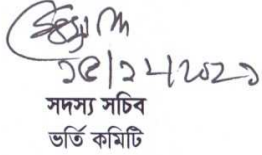 ১৫/১২/২০২১
সদস্য সচিব
ভর্তি কমিটি